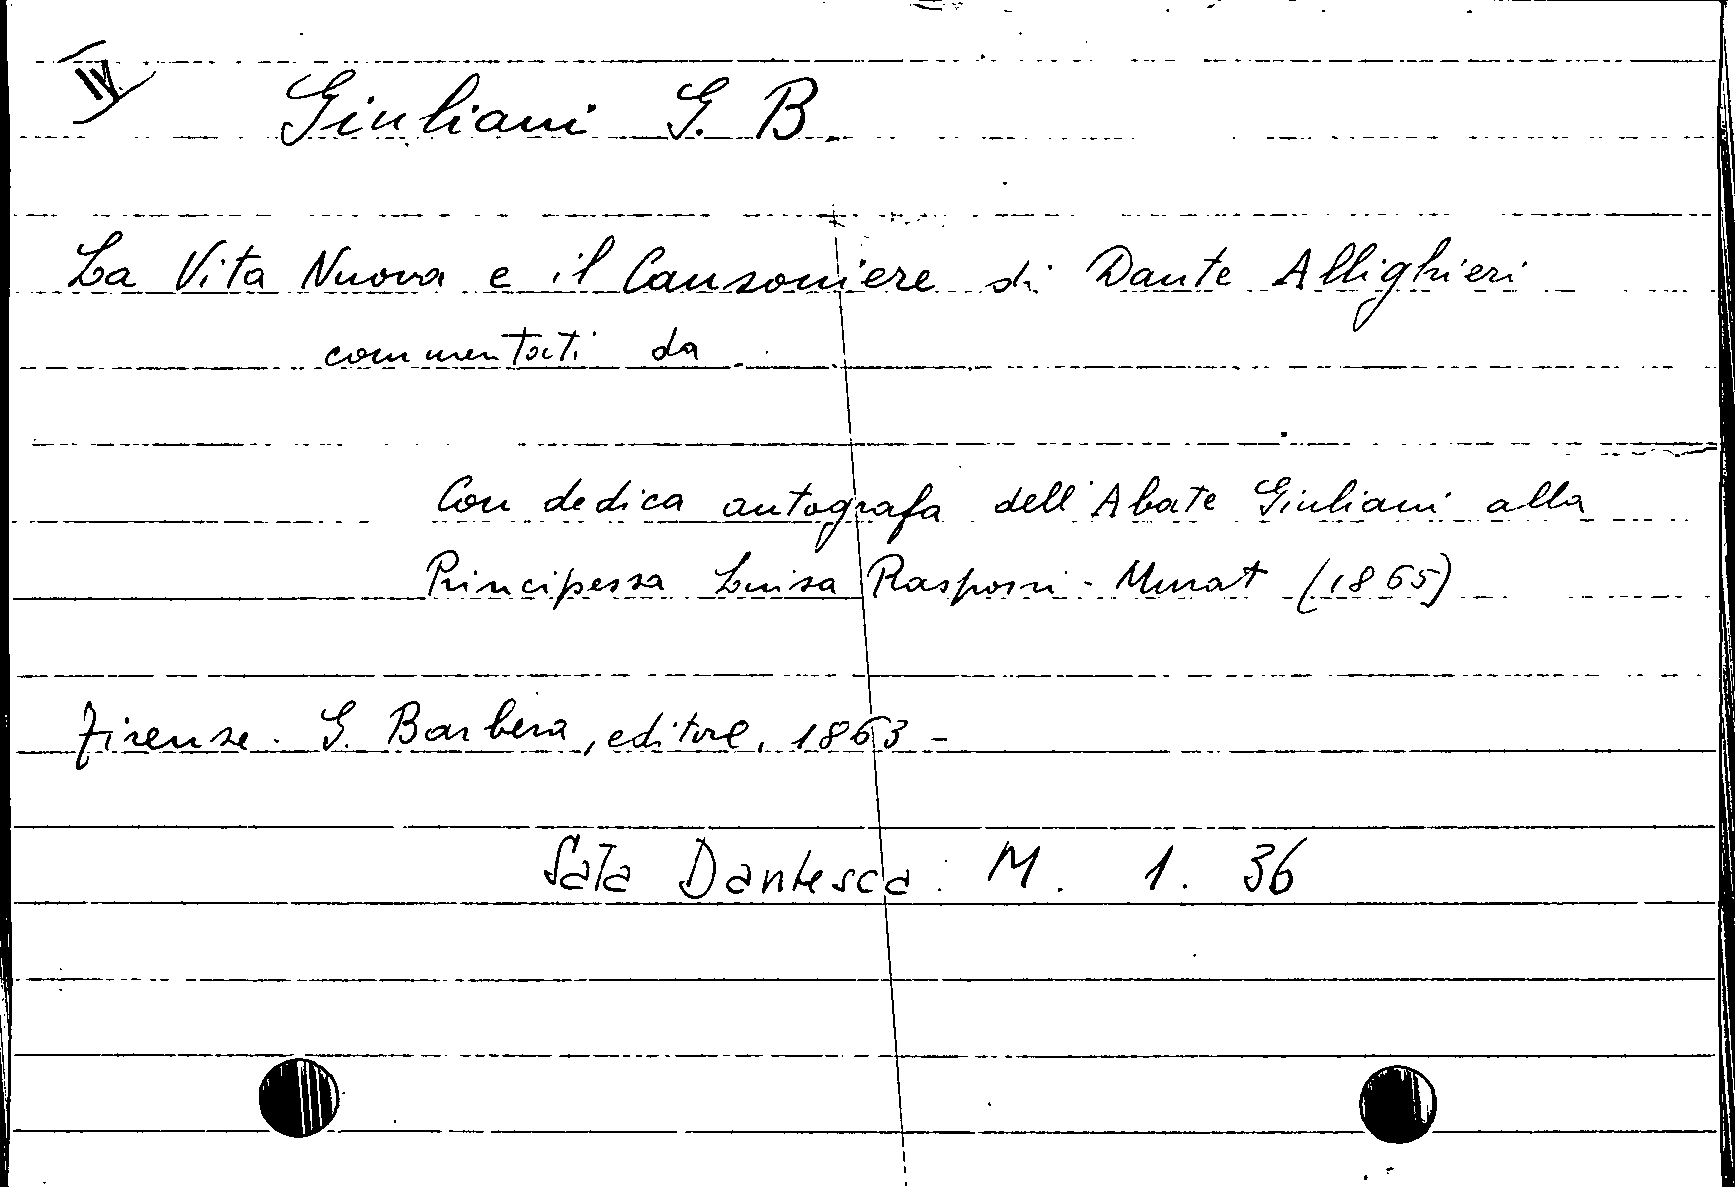 IV
Giuliani G. B.
La Vita Nuova e il Canzoniere di Dante Allighieri
commentati da
Con dedica autografa dell'Abate Giuliani alla
Principessa Luisa Rasponi - Murat (1865)
Firenze. G. Barbera, editore, 1863 -
Sala Dantesca M. 1. 36